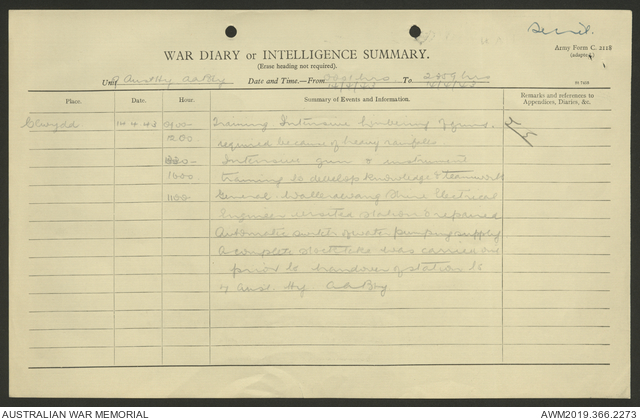 Secret.
Army Form C. 2118
(adapted)
WAR DIARY or INTELLIGENCE SUMMARY.
(Erase heading not required).
Unit 9 Aust Hy aa Bty Date and Time.—From 0001 hrs 14/4/43 To 2359 hrs 14/4/43
Place. Date. Hour. Summary of Events and Information. Remarks and references to Appendices, Diaries, &c.
Clwydd 14.4.43 0900- Training Intensive of guns
1200 required because of heavy rainfalls
Intensive gun & instrument
1600 training to develop knowledge & teamwork
1100 General. Wallerawang Mine Electrical
Engineer visited station & repaired
Automatic water pumping supply
A complete stocktake was carried out
prior to handover of station to
7 Aust. Hy AaBty
AUSTRALIAN WAR MEMORIAL
AWM2019.366.2273